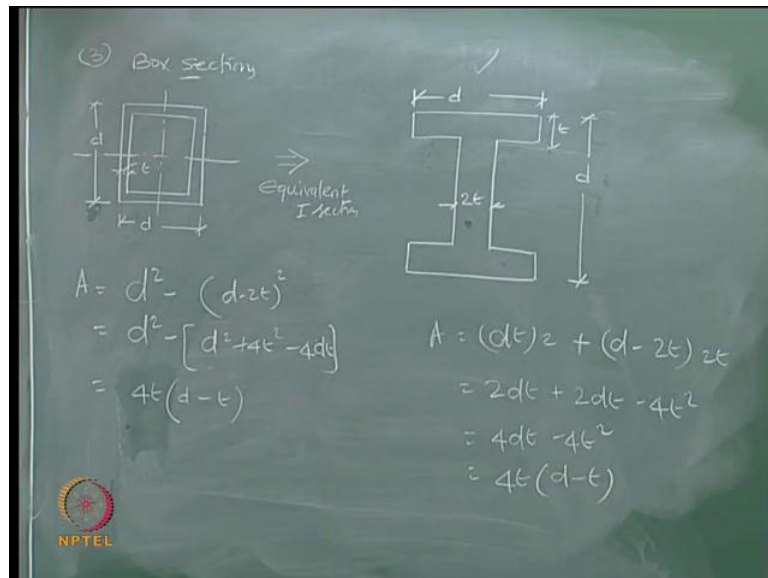 (3) Box section
d
t
d
⇒
Equivalent
I section
A = d² - (d-2t)²
= d² - [d²+4t²-4dt]
= 4t(d-t)
✓
d
t
d
2t
A = (dt)2 + (d-2t)2t
= 2dt + 2dt - 4t²
= 4dt - 4t²
= 4t(d-t)
NPTEL